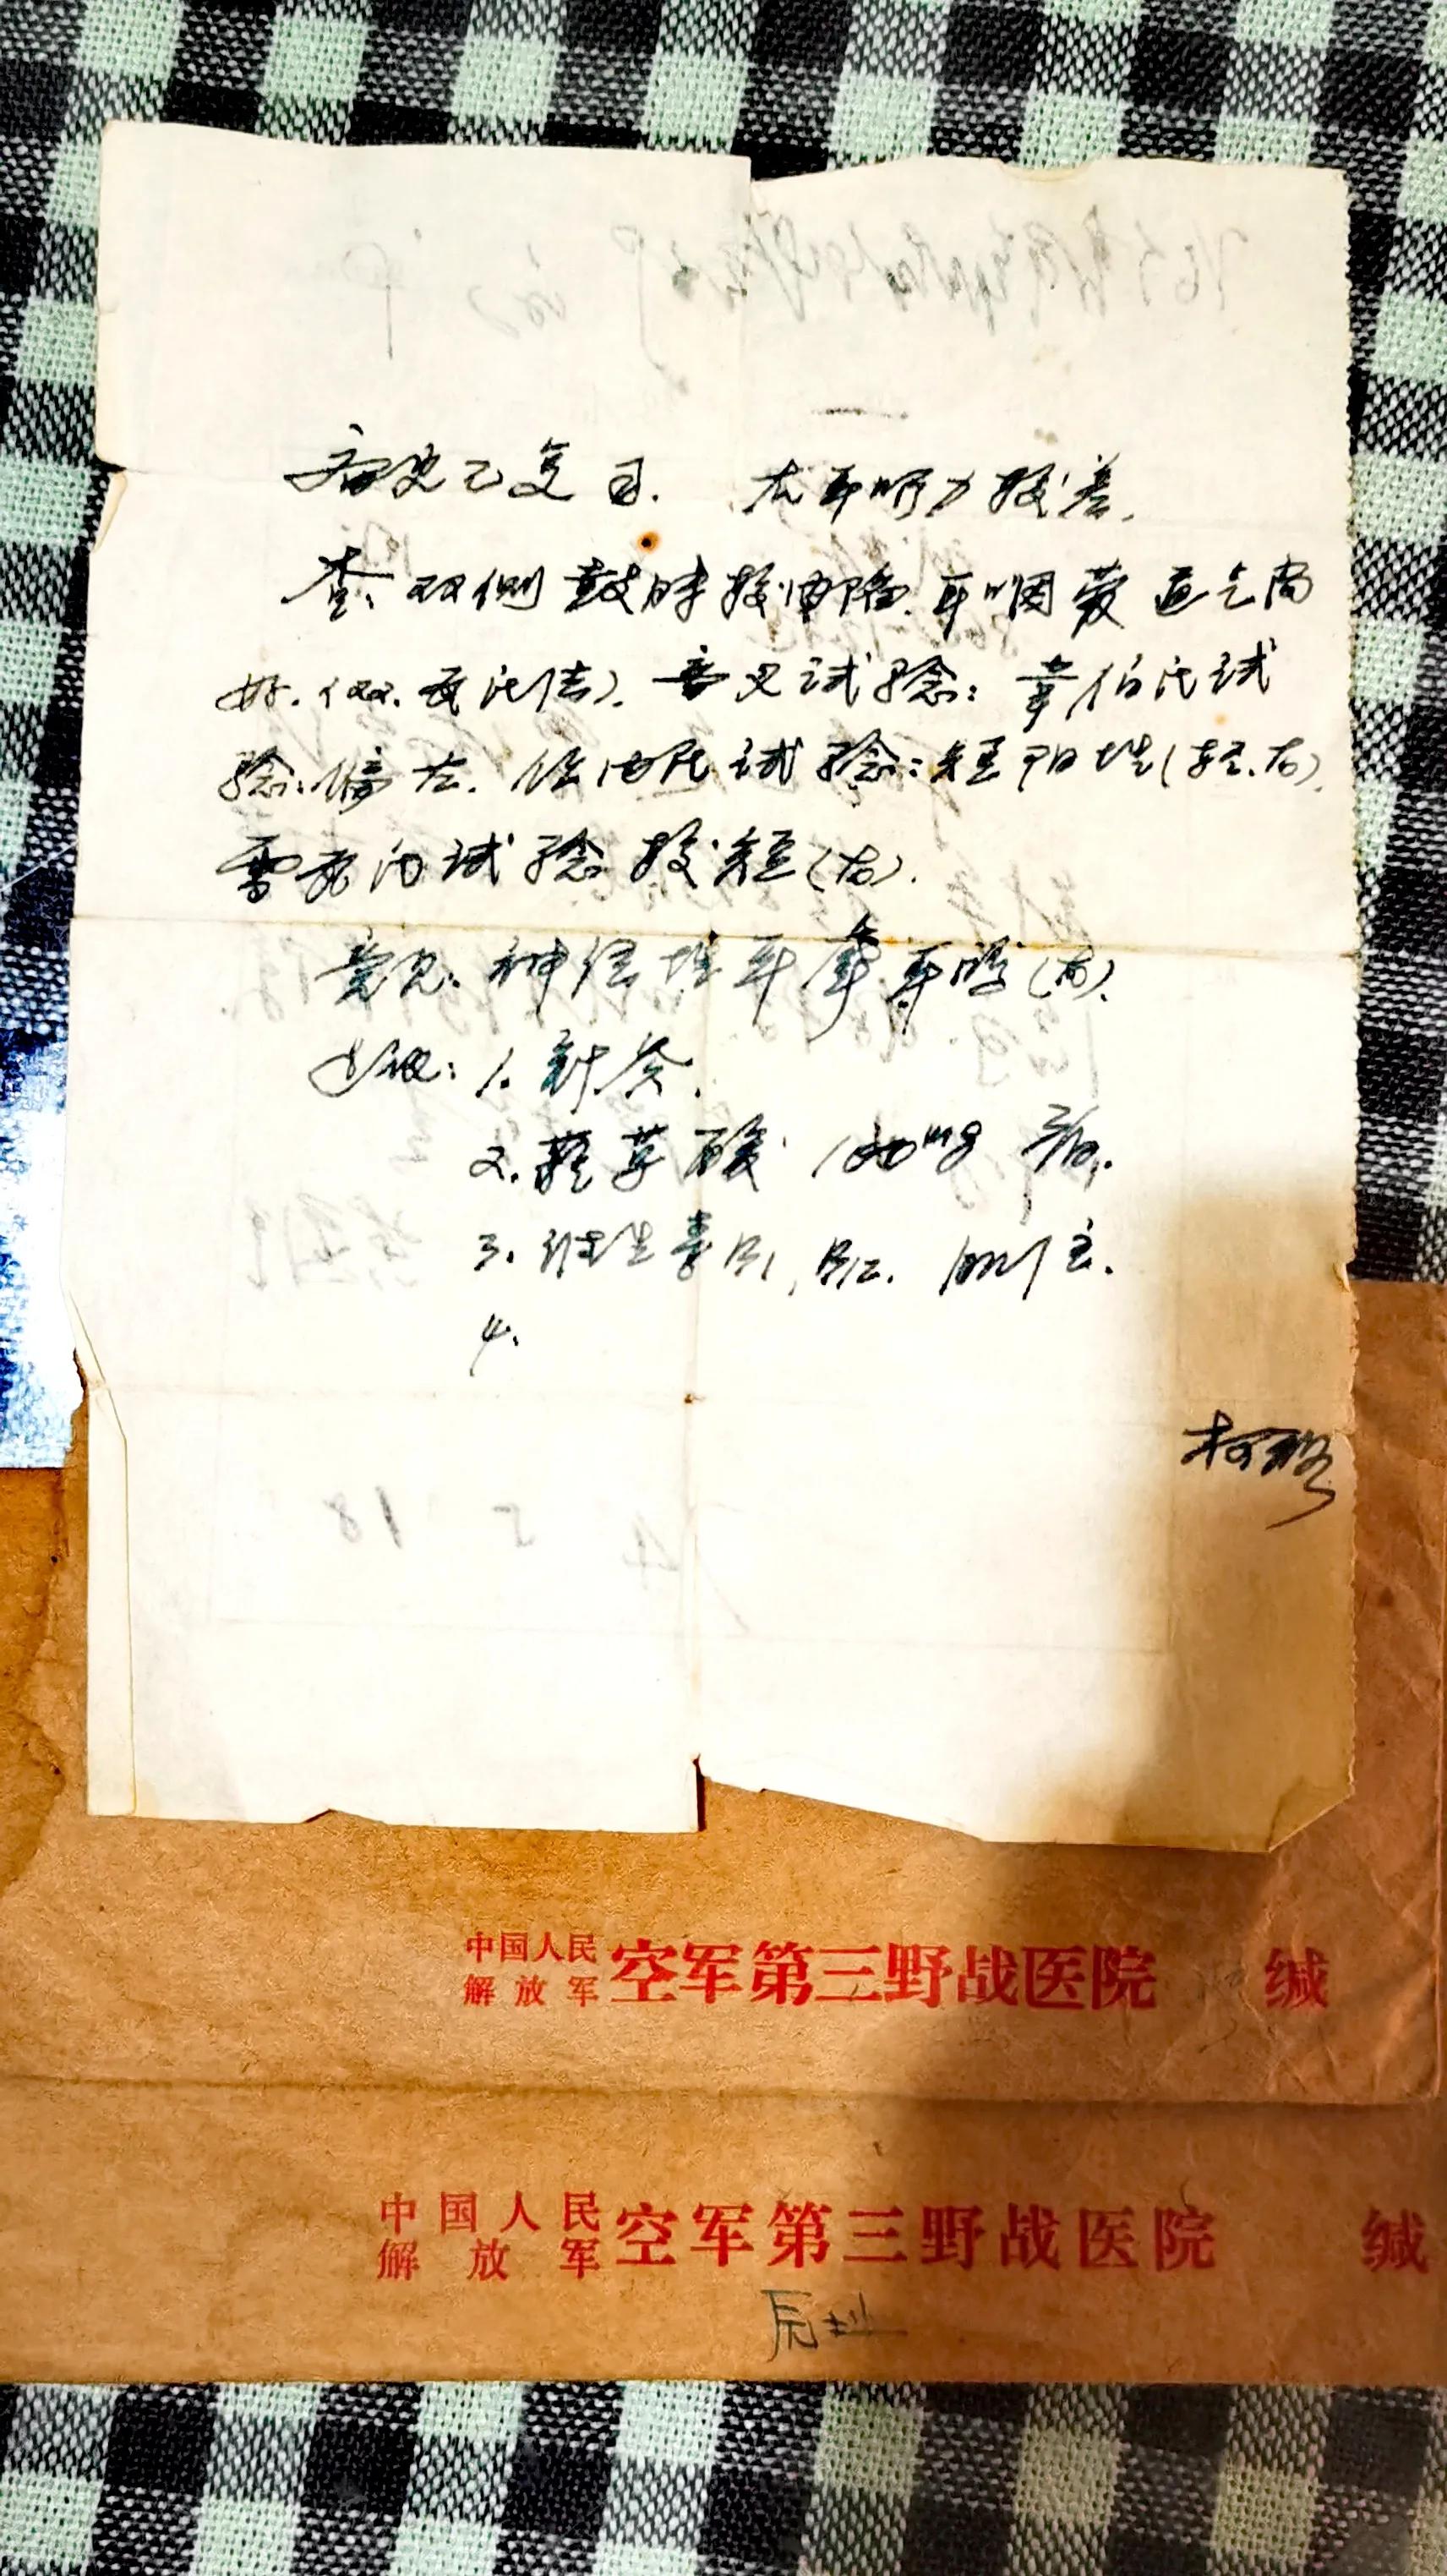 病史已复习. 右耳听力较差.
查: 双侧鼓膜较内陷. 耳咽管通气尚
好.(双. 瓦氏法). 音叉试验: 韦伯氏试
验: 偏左. 任内氏试验: 短阳性(轻.右).
雪瓦伯试验较短(右).
意见: 神经性耳聋 耳鸣(右).
处理: 1. 针灸.
2. 菸草酸 100mg
3. 维生素B1, B12. 肌注.
4.
柯
中国人民
解放军 空军第三野战医院 缄
中国人民
解放军 空军第三野战医院 缄